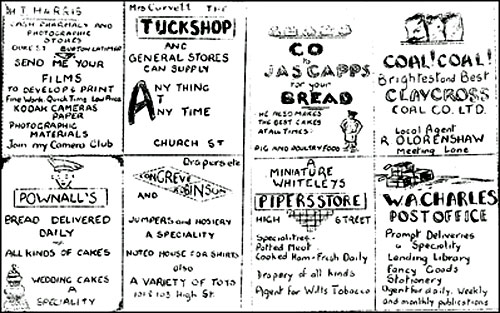 M.T. HARRIS
CASH PHARMACY AND
PHOTOGRAPHIC
STORES
DUKE ST BURTON LATIMER
SEND ME YOUR
FILMS
TO DEVELOPE & PRINT
Fine Work Quick Time Low Prices
KODAK CAMERAS
PAPER
PHOTOGRAPHIC
MATERIALS
Join my Camera Club
Mrs Corvell THE
TUCKSHOP
AND
GENERAL STORES
CAN SUPPLY
ANY THING
AT
ANY TIME
CHURCH ST
GO
to
JAS CAPPS
for your
BREAD
HE ALSO MAKES
THE BEST CAKES
AT ALL TIMES
PIG AND POULTRY FOOD
COAL! COAL!
Brightest and Best
CLAYCROSS
COAL CO. LTD.
Local Agent
R OLORENSHAW
Meeting Lane
POWNALL'S
BREAD DELIVERED
DAILY
ALL KINDS OF CAKES
WEDDING CAKES
A
SPECIALITY
Drapers etc
CONGREVE
AND ROBINSON
JUMPERS AND HOSIERY
A SPECIALITY
NOTED HOUSE FOR SHIRTS
also
A VARIETY OF TOYS
101 & 103 High St.
A
MINIATURE
WHITELEYS
PIPERS STORE
HIGH STREET
Specialities-
Potted Meat
Cooked Ham-Fresh Daily
Drapery of all kinds
Agent for Wills Tobacco
W.A. CHARLES
POST OFFICE
Prompt Deliveries
a Speciality
Lending Library
Fancy Goods
Stationery
Agent for daily, weekly
and monthly publications